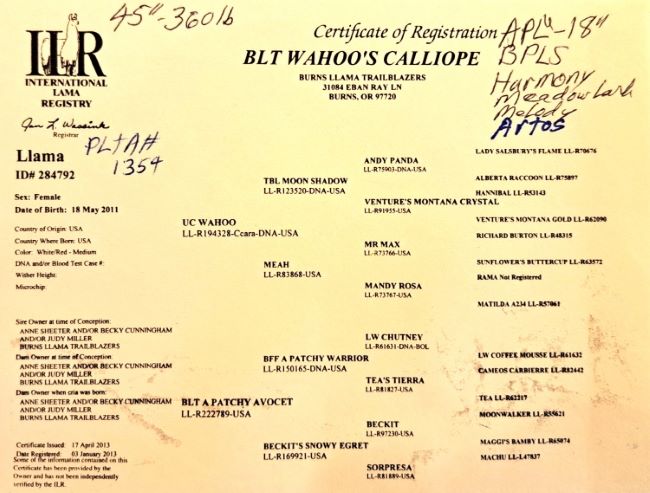 45"-360lb
Certificate of Registration
BLT WAHOO'S CALLIOPE
BURNS LLAMA TRAILBLAZERS
31084 EBAN RAY LN
BURNS, OR 97720
APL 18"
BPLS
Harmony
Meadowlark
Melody
Artos
ILR
INTERNATIONAL
LAMA
REGISTRY
Registrar
PLTA#
1354
Llama
ID# 284792
Sex: Female
Date of Birth: 18 May 2011
Country of Origin: USA
Country Where Born: USA
Color: White/Red - Medium
DNA and/or Blood Test Case #:
Wither Height:
Microchip:
Sire Owner at time of Conception:
ANNE SHEETER AND/OR BECKY CUNNINGHAM
AND/OR JUDY MILLER
BURNS LLAMA TRAILBLAZERS
Dam Owner at time of Conception:
ANNE SHEETER AND/OR BECKY CUNNINGHAM
AND/OR JUDY MILLER
BURNS LLAMA TRAILBLAZERS
Dam Owner when cria was born:
ANNE SHEETER AND/OR BECKY CUNNINGHAM
AND/OR JUDY MILLER
BURNS LLAMA TRAILBLAZERS
Certificate Issued: 17 April 2013
Date Registered: 03 January 2013
Some of the information contained on this
Certificate has been provided by the
Owner and has not been independently
verified by the ILR.
UC WAHOO
LL-R194328-Ccara-DNA-USA
BLT A PATCHY AVOCET
LL-R222789-USA
TBL MOON SHADOW
LL-R123520-DNA-USA
MEAH
LL-R83868-USA
BFF A PATCHY WARRIOR
LL-R150165-DNA-USA
BECKIT'S SNOWY EGRET
LL-R169921-USA
ANDY PANDA
LL-R75903-DNA-USA
VENTURE'S MONTANA CRYSTAL
LL-R91955-USA
MR MAX
LL-R73766-USA
MANDY ROSA
LL-R73767-USA
LW CHUTNEY
LL-R61631-DNA-BOL
TEA'S TIERRA
LL-R81827-USA
BECKIT
LL-R97230-USA
SORPRESA
LL-R81889-USA
LADY SALSBURY'S FLAME LL-R70676
ALBERTA RACCOON LL-R75897
HANNIBAL LL-R53143
VENTURE'S MONTANA GOLD LL-R62090
RICHARD BURTON LL-R48315
SUNFLOWER'S BUTTERCUP LL-R63572
RAMA Not Registered
MATILDA A234 LL-R57061
LW COFFEE MOUSSE LL-R61632
CAMEOS CARBIERRE LL-R82442
TEA LL-R62217
MOONWALKER LL-R55621
MAGGI'S BAMBY LL-R65074
MACHU LL-L47837